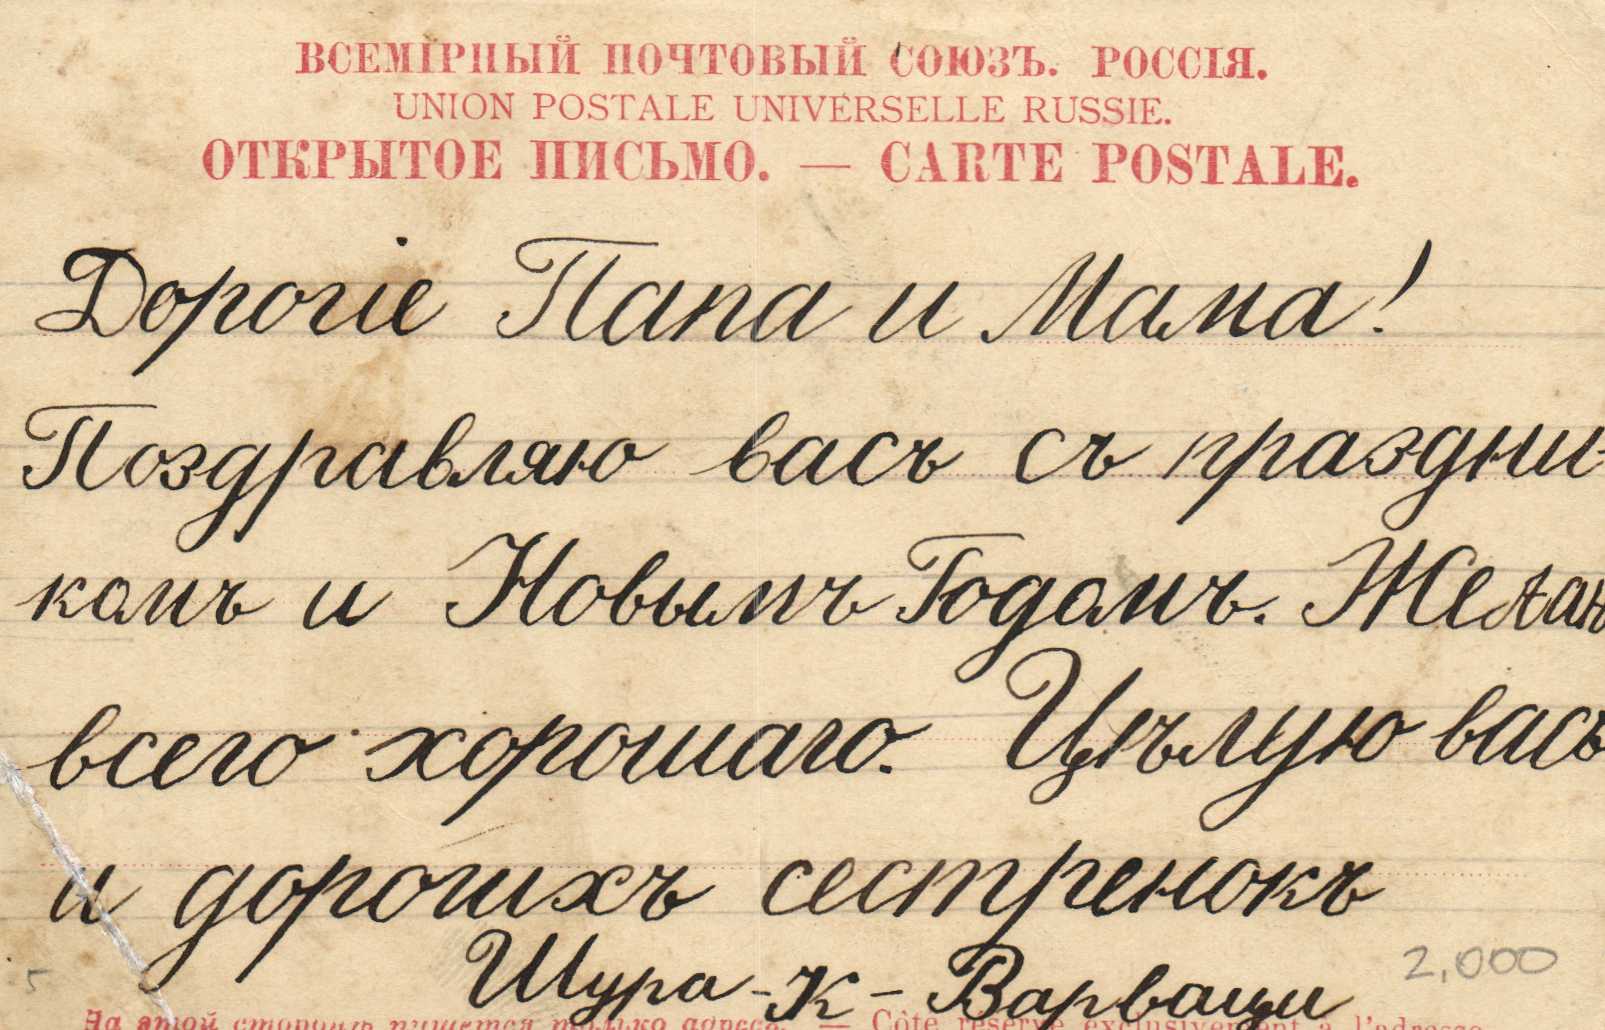 ВСЕМІРНЫЙ ПОЧТОВЫЙ СОЮЗЪ. РОССІЯ.
UNION POSTALE UNIVERSELLE RUSSIE.
ОТКРЫТОЕ ПИСЬМО. — CARTE POSTALE.
Дорогіе Папа и Мама!
Поздравляю васъ съ праздни-
комъ и Новымъ Годомъ. Желаю
всего хорошаго. Цѣлую васъ
и дорогихъ сестренокъ
Шура - К - Варваци
2,000
На этой сторонѣ пишется только адресъ. — Côté réservé exclusivement à l'adresse